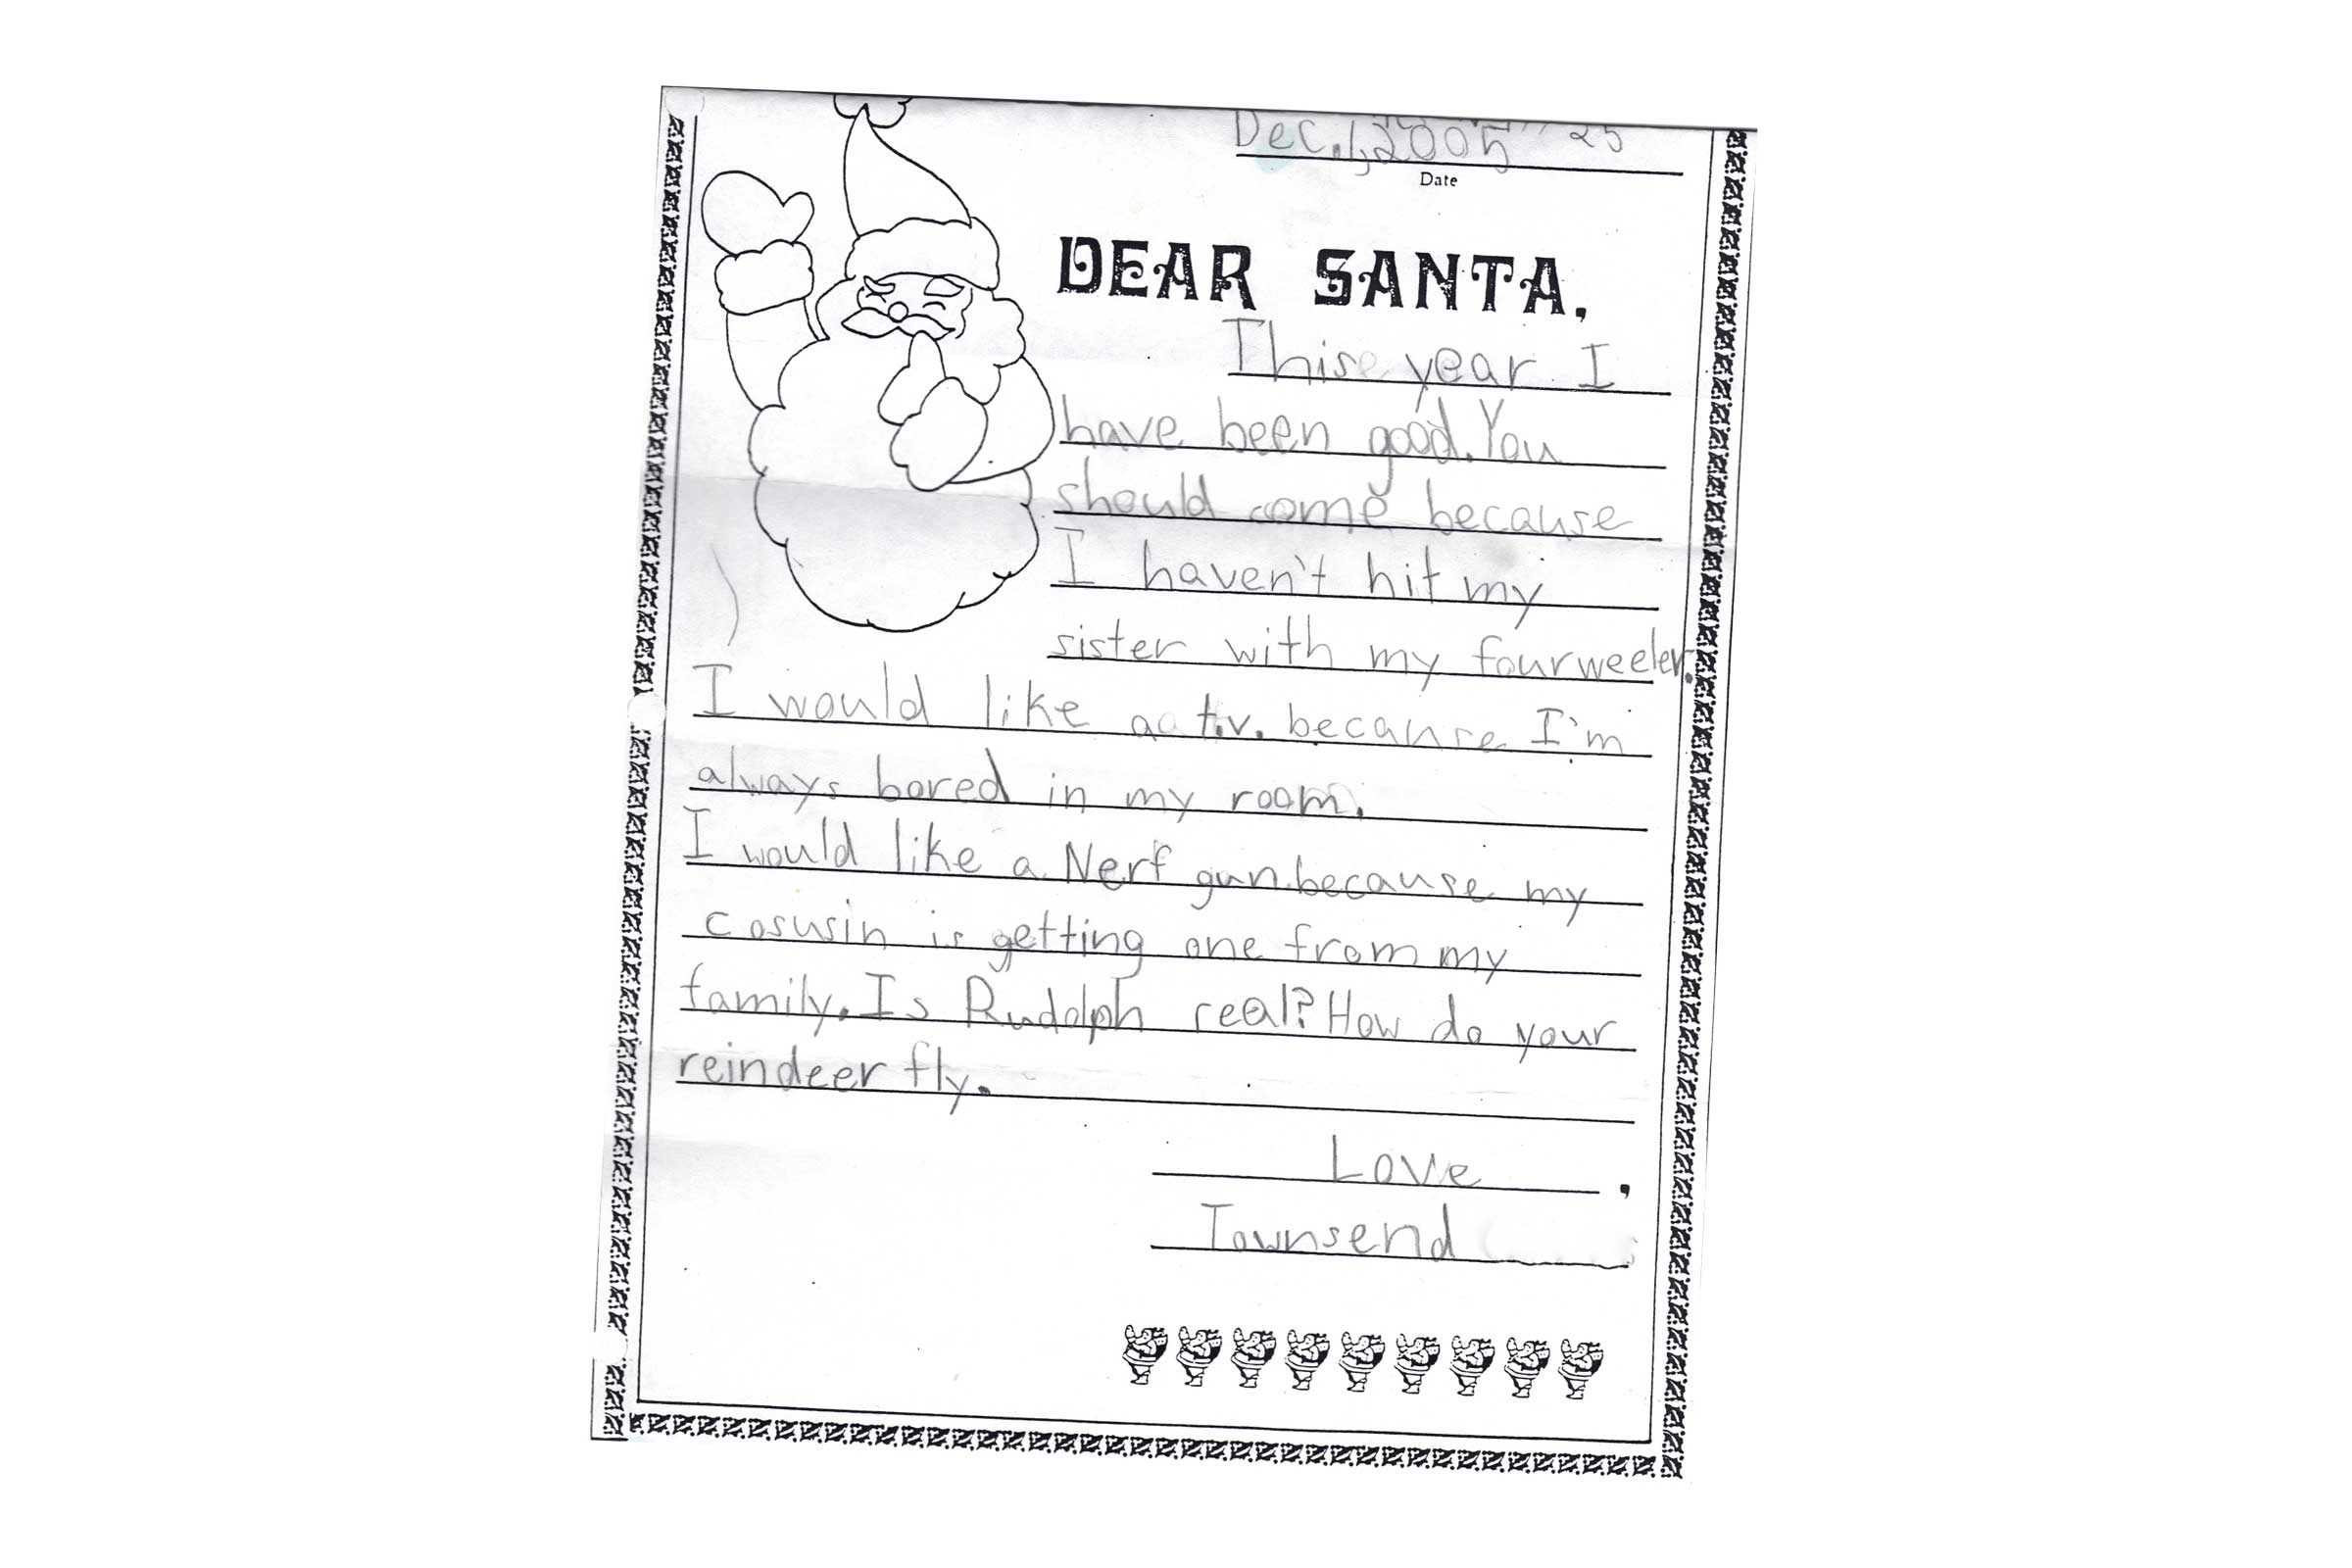 Dec. 1, 2005 25
Date
DEAR SANTA,
This year I
have been good. You
should come because
I haven't hit my
sister with my fourweeler.
I would like a t.v. because I'm
always bored in my room.
I would like a Nerf gun because my
cosusin is getting one from my
family. Is Rudolph real? How do your
reindeer fly.
Love,
Townsend